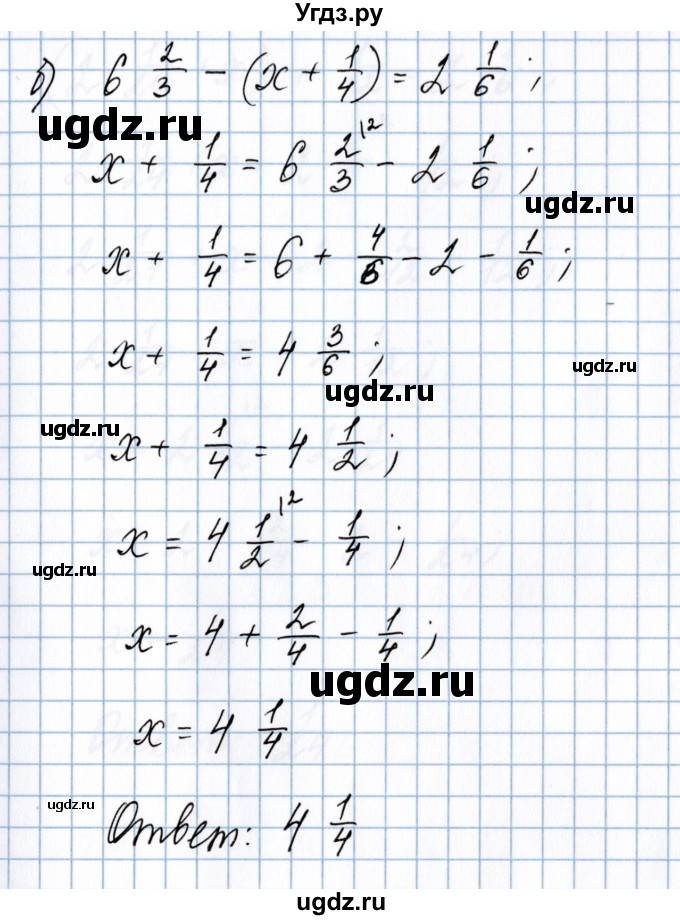 Угдз.ру
б) 6 2/3 - (x + 1/4) = 2 1/6 ;
ugdz.ru
x + 1/4 = 6 2/3 |2 - 2 1/6 ;
ugdz.ru
x + 1/4 = 6 + 4/6 - 2 - 1/6 ;
x + 1/4 = 4 3/6 ;
ugdz.ru
ugdz.ru
ugdz.ru
x + 1/4 = 4 1/2 ;
x = 4 1/2 |2 - 1/4 ;
ugdz.ru
x = 4 + 2/4 - 1/4 ;
ugdz.ru
x = 4 1/4
ugdz.ru
Ответ: 4 1/4
ugdz.ru